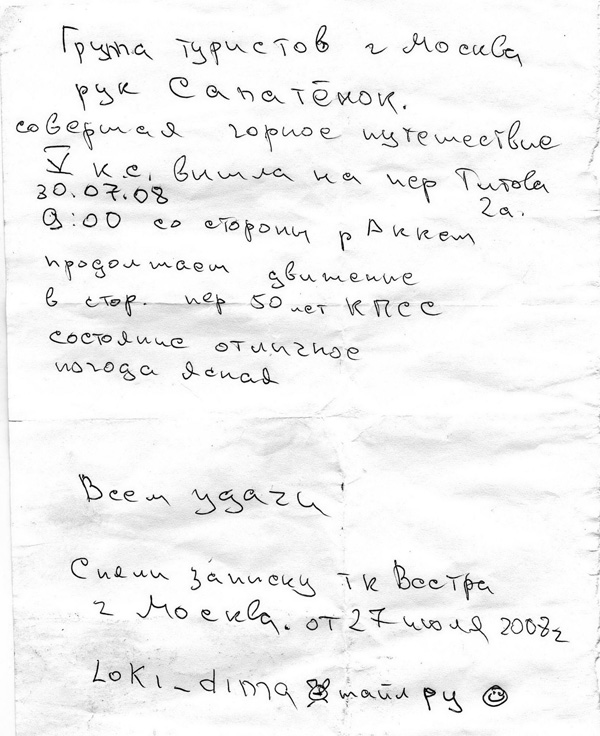 Група туристов г Москва
рук Сапатёнок.
совершая горное путешествие
V к.с. вышла на пер Титова
30.07.08 2а.
9:00 со стороны р Аккем
продолжает движение
в стор. пер 50 лет КПСС
состояние отличное
погода ясная
Всем удачи
Сняли записку тк Вестра
г Москва. от 27 июля 2008г
Loki_dima майл ру